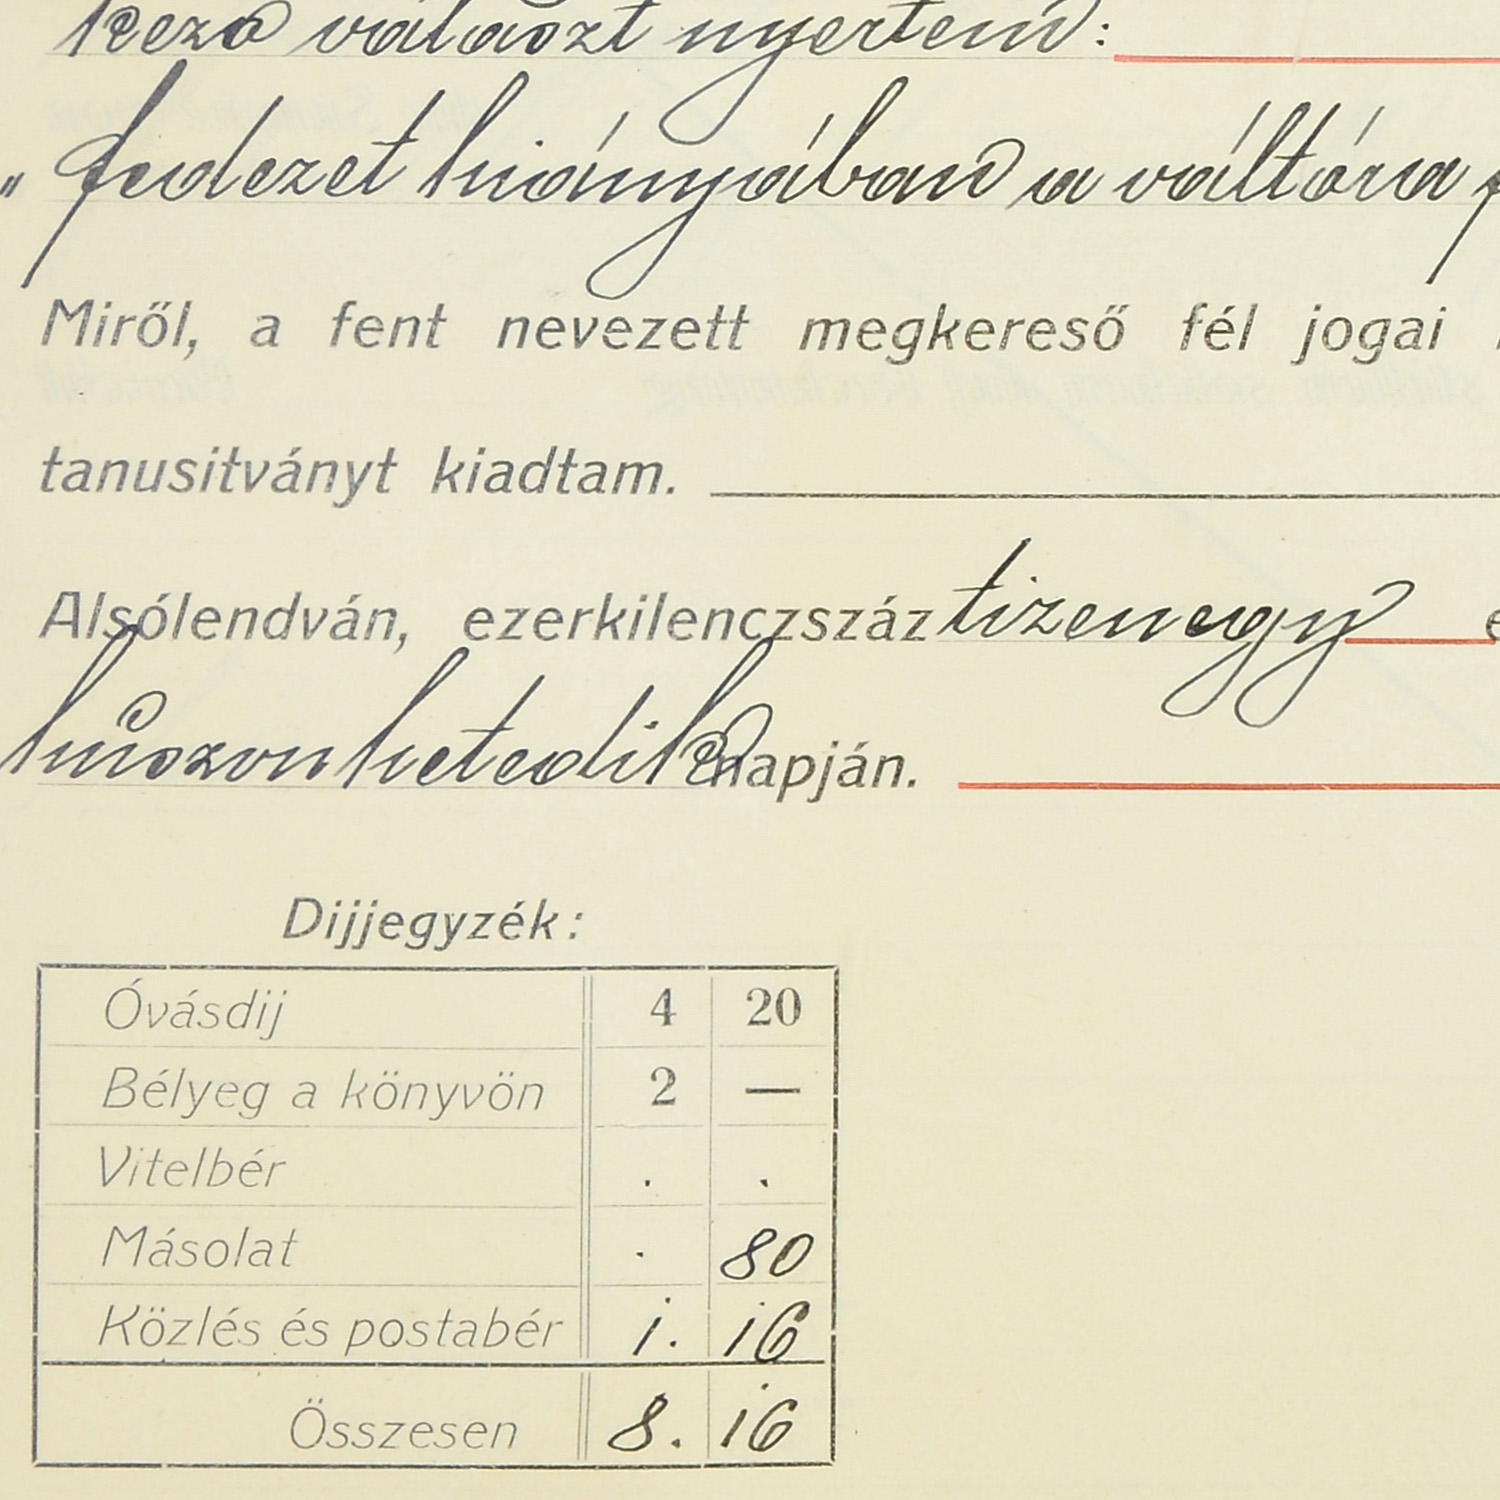 választ nyertem:
„fedezet hiányában a váltóra
Miről, a fent nevezett megkereső fél jogai
tanusitványt kiadtam.
Alsólendván, ezerkilenczszáz tizenegy
húszonhetedik napján.
Dijjegyzék:
Óvásdij 4 20
Bélyeg a könyvön 2 —
Vitelbér . .
Másolat . 80
Közlés és postabér 1. 16
Összesen 8. 16